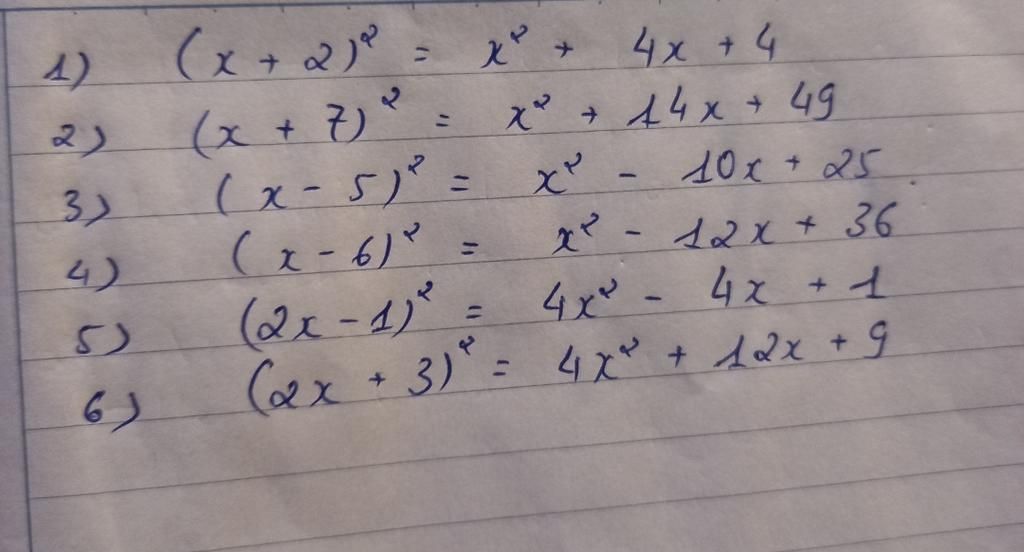 1) (x + 2)² = x² + 4x + 4
2) (x + 7)² = x² + 14x + 49
3) (x - 5)² = x² - 10x + 25
4) (x - 6)² = x² - 12x + 36
5) (2x - 1)² = 4x² - 4x + 1
6) (2x + 3)² = 4x² + 12x + 9